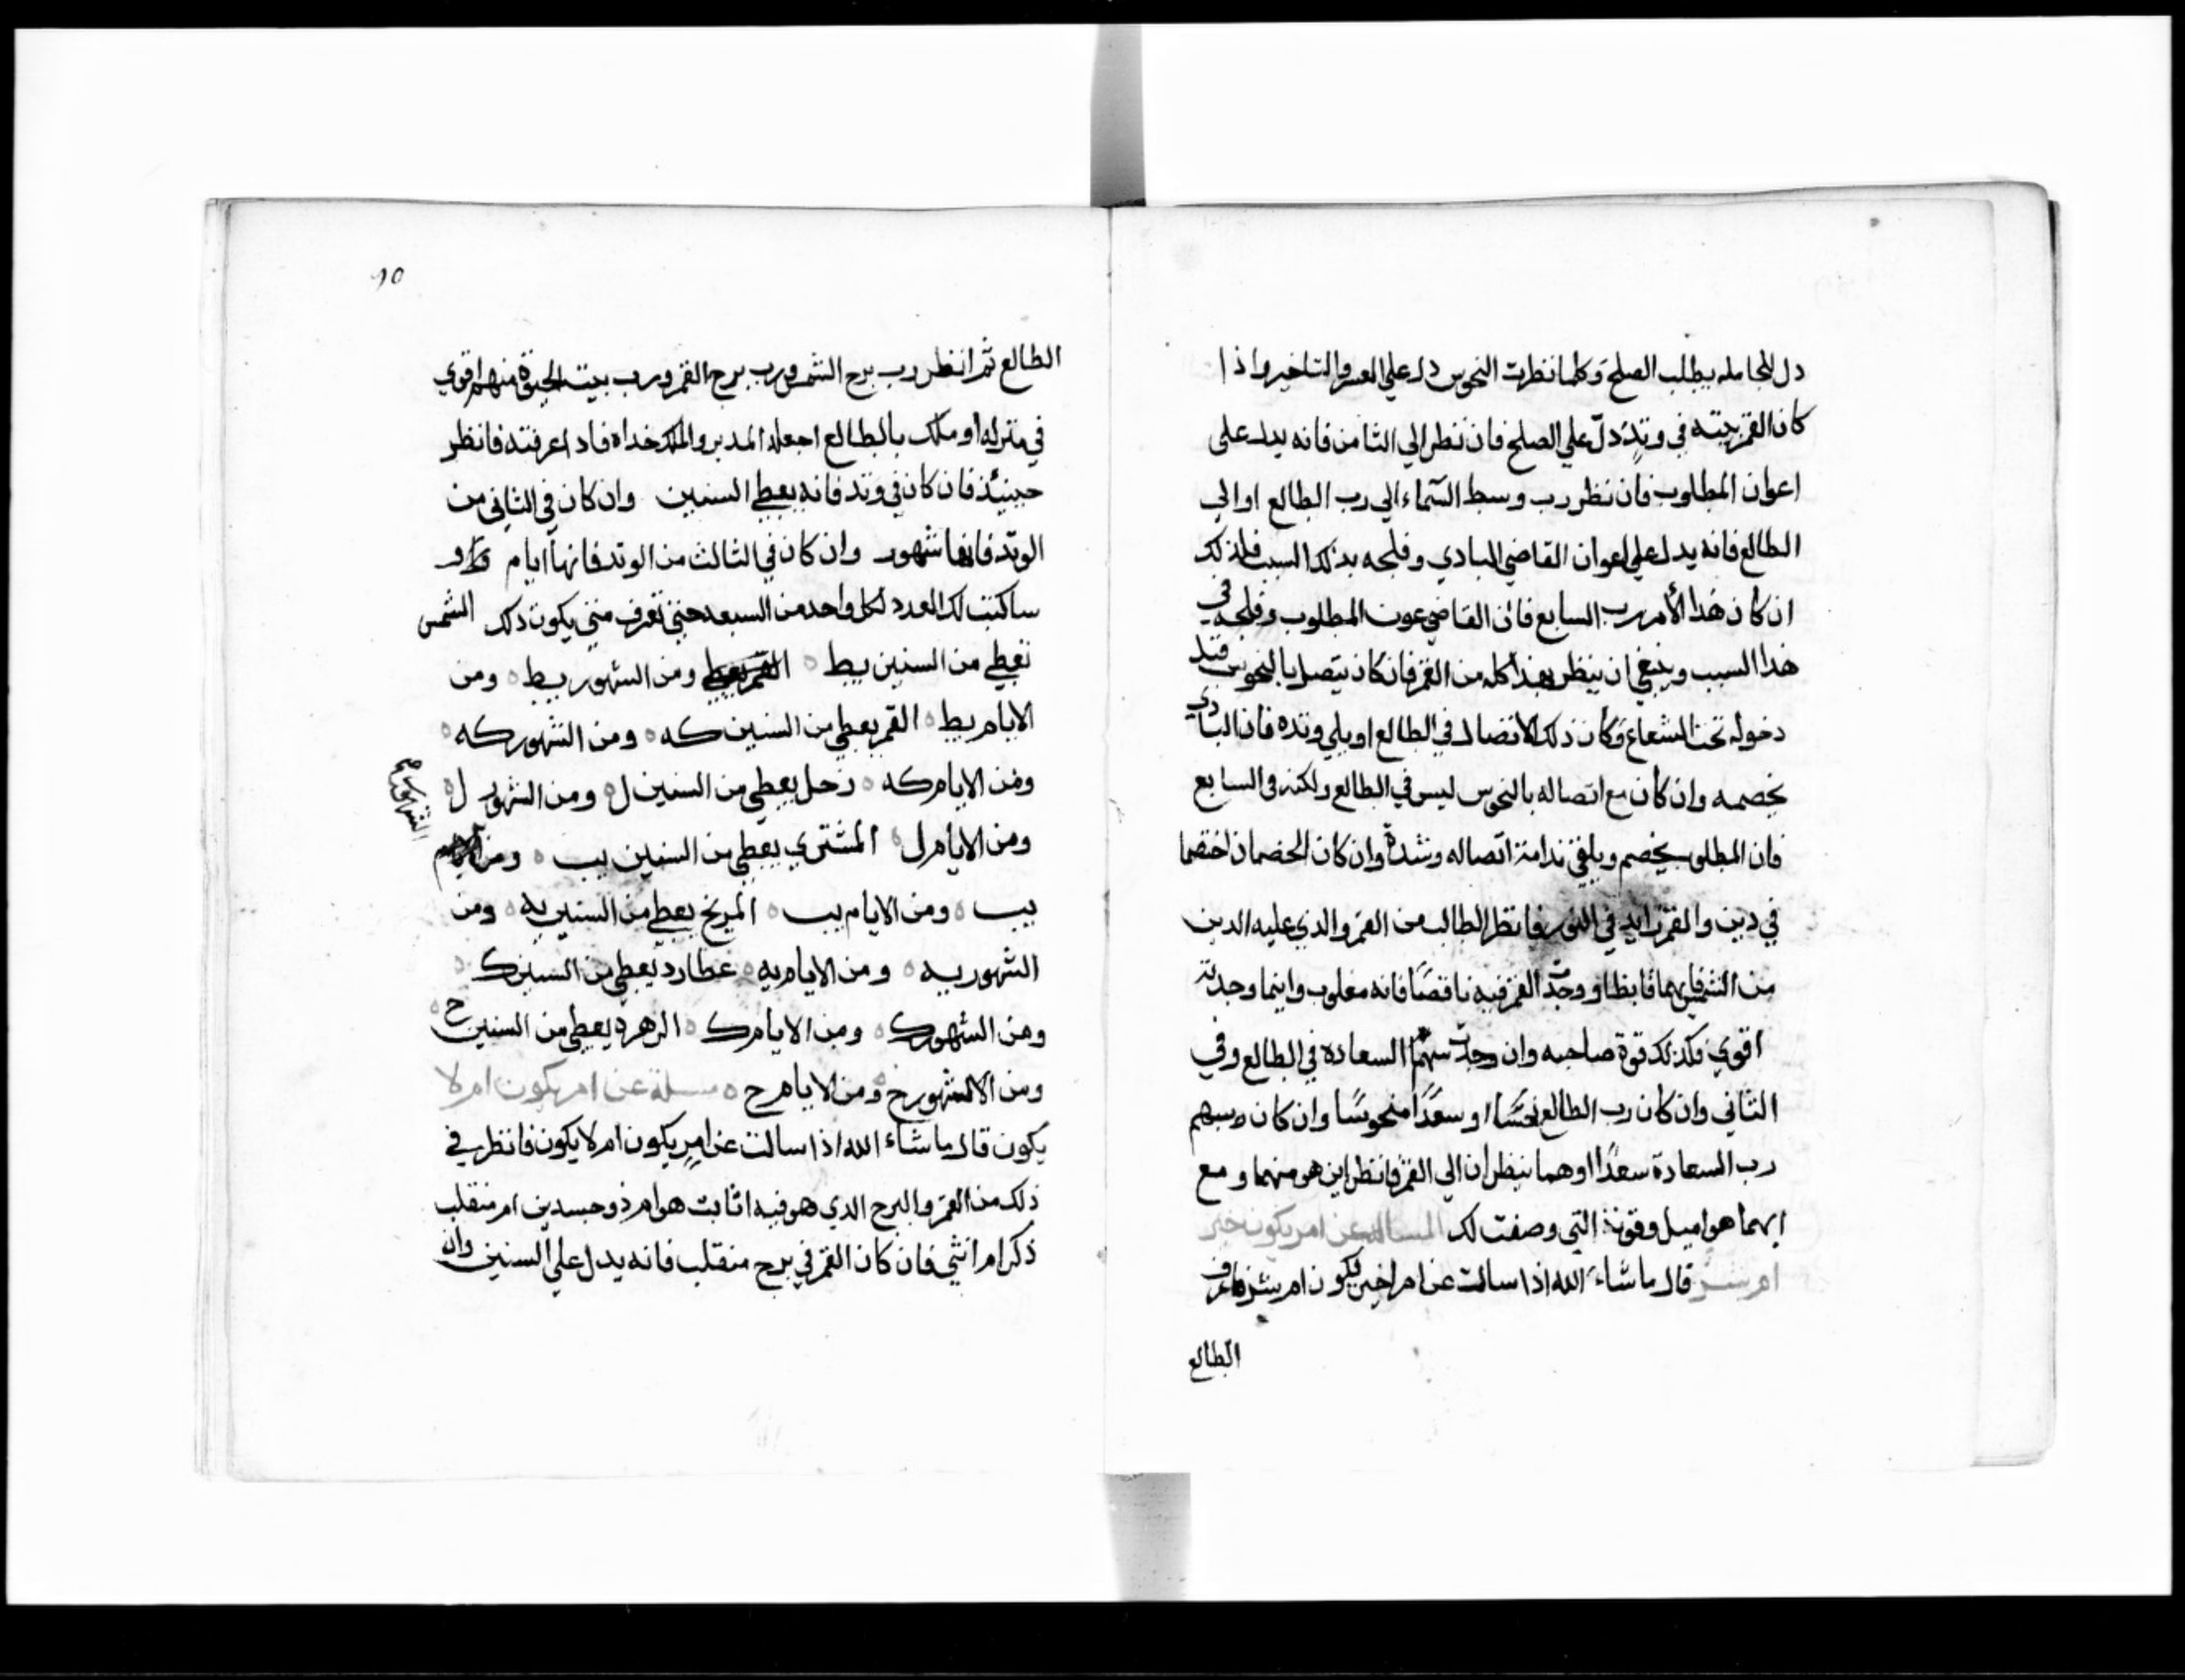 دل المجامله يطلب الصلح وكلما نظرت النحوس دل علي العسر والتاخير واذا
كان القمر بيته في وتد دل علي الصلح فان نظر الي الثامن فانه يدل على
اعوان المطلوب فان نظر رب وسط السماء الي رب الطالع او الي
الطالع فانه يدل علي اعوان القاضي البادي وفلجه بذلك السبب فلذلك
ان كان هذا الأمر رب السابع فان القاضي عون المطلوب وفلجه في
هذا السبب وينبغي ان ينظر بهذا كله من القمر فان كان يتصل بالنحوس قبل
دخوله تحت الشعاع وكان ذلك الاتصال في الطالع او يلي وتده فان البادي
يخصمه وان كان مع اتصاله بالنحوس ليس في الطالع ولكنه في السابع
فان المطلوب يخصم ويلقي ندامة اتصاله وشدة وان كان الخصمان اختصما
في دين والقمر زايد في النور فانظر الطالب من القمر والذي عليه الدين
من الشمس فايهما وجدت القمر فيه ناقصًا فانه مغلوب واينما وجدته
اقوي فكذلك قوة صاحبه وان وجدت سهم السعادة في الطالع وفي
الثاني وان كان رب الطالع نحسًا او سعدًا منحوسًا وان كان سهم
رب السعادة سعدًا او هما ينظران الي القمر فانظر اين هو منهما ومع
ايهما هو اميل وقوته التي وصفت لك المسالة عن امر يكون خير
ام شر قال ما شاء الله اذا سالت عن امر اخير يكون ام شر فاعرف
الطالع
10
الطالع ثم انظر رب برج الشمس ورب برج القمر ورب بيت الحيوة منهم اقوي
في منزله او ملك بالطالع اجعله المدبر والملك خداه فاذا عرفته فانظر
حينيئذ فان كان في وتد فانه يعطي السنين وان كان في الثاني من
الوتد فانها شهور وان كان في الثالث من الوتد فانها ايام
ساكتب لك العدد لكل واحد من السبعه حتي تعرف متي يكون ذلك الشمس
تعطي من السنين يط ومن الشهور يط ومن
الايام يط القمر يعطي من السنين كه ومن الشهور كه
ومن الايام كه زحل يعطي من السنين ل ومن الشهور ل
ومن الايام ل المشتري يعطي من السنين يب ومن
الشهور صح
يب ومن الايام يب المريخ يعطي من السنين يه ومن
الشهور يه ومن الايام يه عطارد يعطي من السنين ك
ومن الشهور ك ومن الايام ك الزهره يعطي من السنين ح
ومن الشهور ح ومن الايام ح مسلة عن امر يكون ام لا
يكون قال ما شاء الله اذا سالت عن امر يكون ام لا يكون فانظر في
ذلك من القمر والبرج الذي هو فيه اثابت هو ام ذو جسدين ام منقلب
ذكر ام انثي فان كان القمر في برج منقلب فانه يدل علي السنين وان